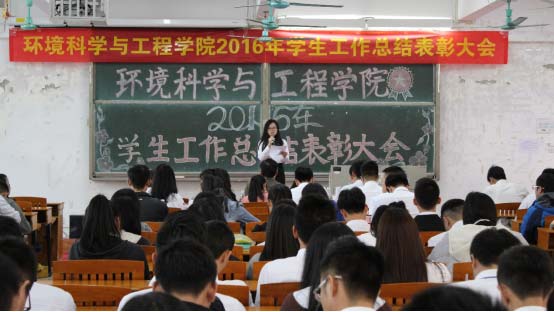 环境科学与工程学院2016年学生工作总结表彰大会
环境科学与工程学院
2016年
学生工作总结表彰大会